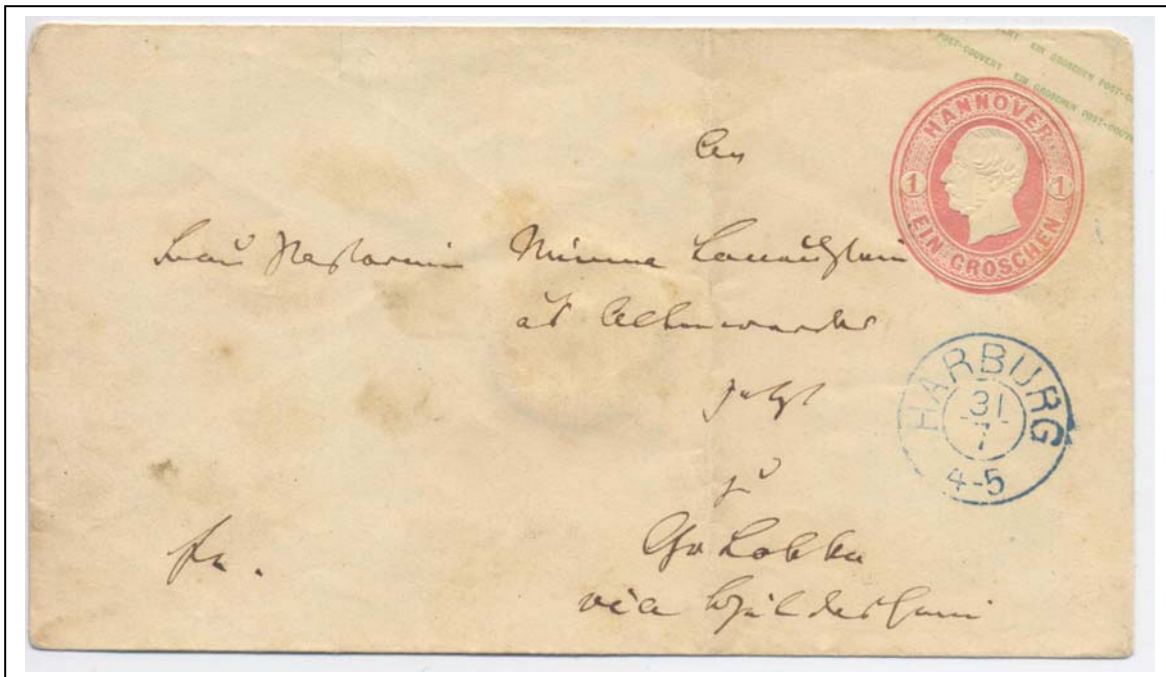 POST-COUVERT EIN GROSCHEN POST-COUVERT
HANNOVER
1 1
EIN GROSCHEN
An
Frau Pastorin Minna
aus Altenwerder
jetzt
zu
Gr Lobke
via Hildesheim
fr.
HARBURG
31
7
4-5